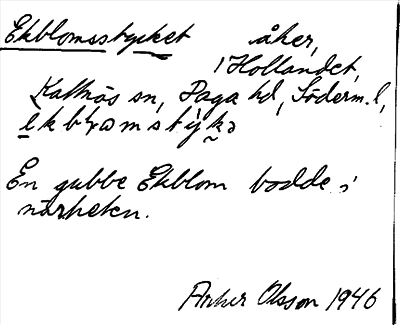 Ekblomsstycket åker,
i Hollandet,
Kattnäs sn, Daga hd, Söderm. l,
En gubbe Ekblom bodde i
närheten.
Olsson 1946